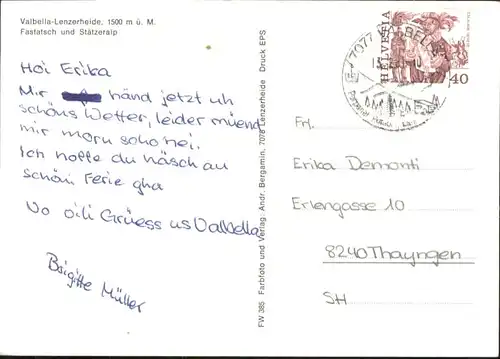 Valbella-Lenzerheide, 1500 m ü. M.
Fastatsch und Stätzeralp
Hoi Erika
Mir händ jetzt uh
schöns Wetter, leider müend
mir morn scho hei.
Ich hoffe du häsch au
schöni Ferie gha
Vo vili Grüess us Valbella
Brigitte Müller
FW 385 Farbfoto und Verlag: Andr. Bergamin, 7078 Lenzerheide Druck EPS
HELVETIA
40
7077 VALBELLA
Frl.
Erika Demonti
Erlengasse 10
8240 Thayngen
SH